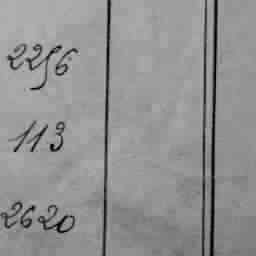 2256
113
2620